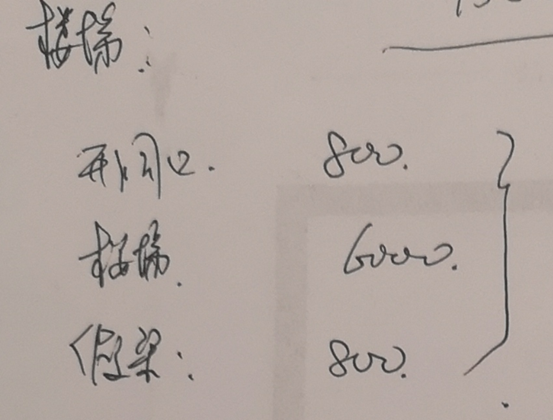 楼梯:
开洞口. 800.
楼梯. 6000.
假梁: 800.